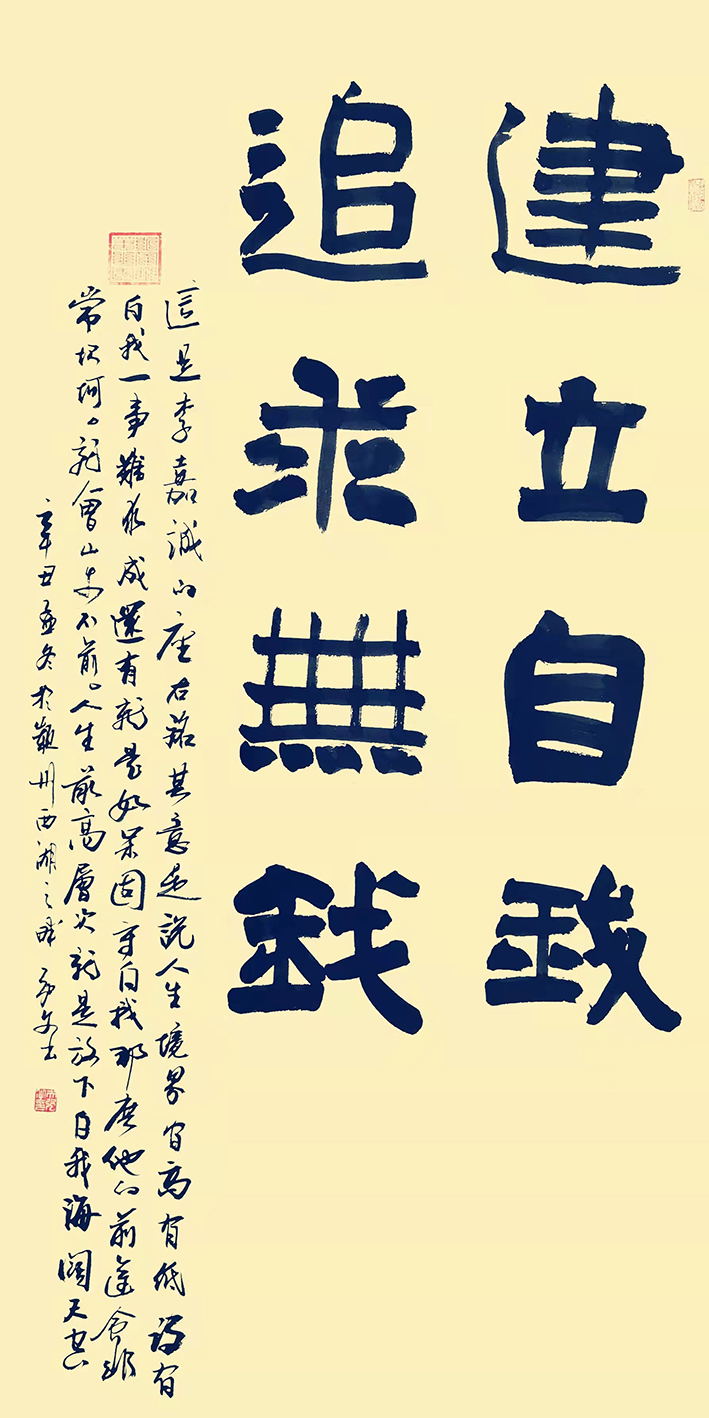 建立自我
追求無我
這是李嘉誠的座右銘其意是說人生境界有高有低沒有
自我一事難成還有就是如果固守自我那麼他的前途會非
常坎坷。就會止步不前。人生最高層次就是放下自我海闊天空
辛丑孟冬於潁州西湖之畔